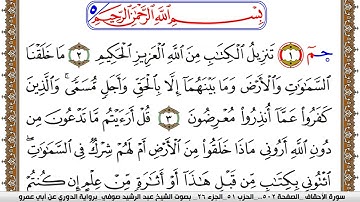 بِسْمِ اللَّهِ الرَّحْمَٰنِ الرَّحِيمِ
حمٓ ١ تَنزِيلُ الْكِتَابِ مِنَ اللَّهِ الْعَزِيزِ الْحَكِيمِ ٢ مَا خَلَقْنَا
السَّمَاوَاتِ وَالْأَرْضَ وَمَا بَيْنَهُمَا إِلَّا بِالْحَقِّ وَأَجَلٍ مُّسَمًّى وَالَّذِينَ
كَفَرُوا عَمَّا أُنذِرُوا مُعْرِضُونَ ٣ قُلْ أَرَءَيْتُم مَّا تَدْعُونَ مِن
دُونِ اللَّهِ أَرُونِي مَاذَا خَلَقُوا مِنَ الْأَرْضِ أَمْ لَهُمْ شِرْكٌ فِي السَّمَاوَاتِ
ائْتُونِي بِكِتَابٍ مِّن قَبْلِ هَٰذَا أَوْ أَثَارَةٍ مِّنْ عِلْمٍ إِن كُنتُمْ
سورة الأحقاف الصفحة ٥٠٢ الحزب ٥١ الجزء ٢٦ بصوت الشيخ عبد الرشيد صوفي برواية الدوري عن أبي عمرو